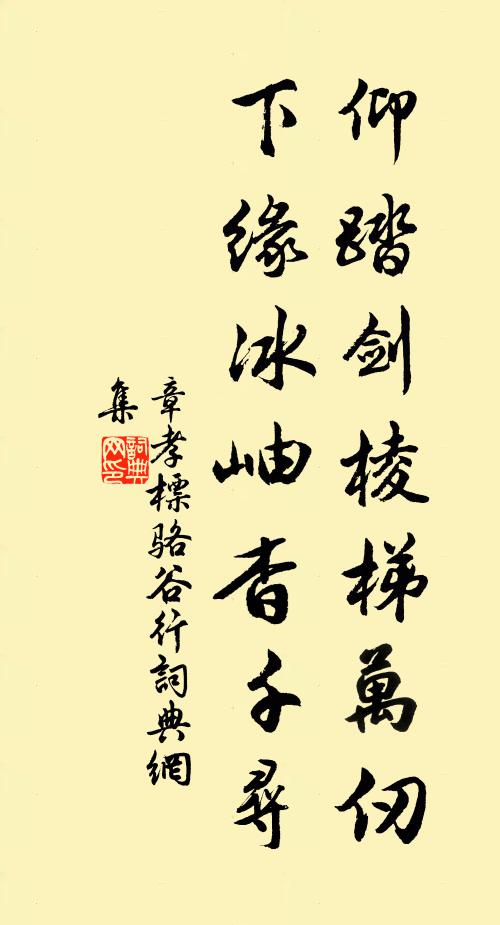 仰踏劍棱梯萬仞
下緣冰岫杳千尋
章孝標駱谷行詞典網
集
詞典
网印